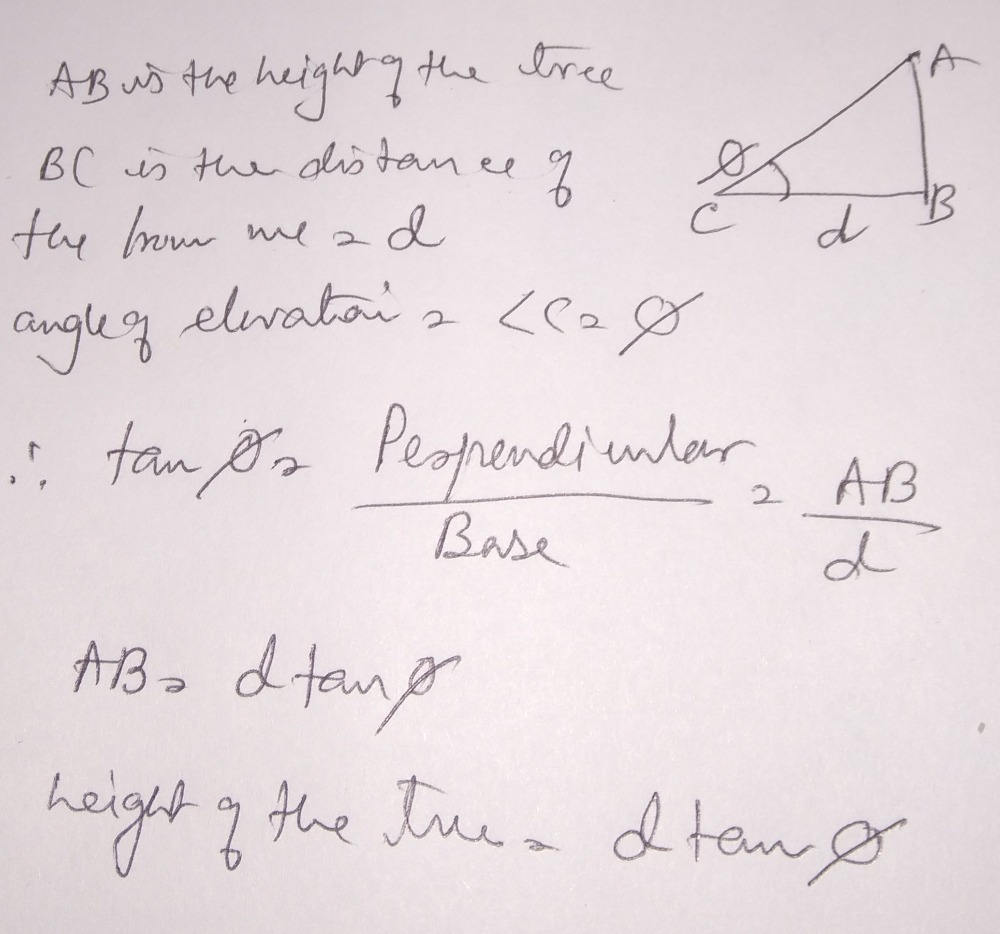 AB is the height of the tree
BC is the distance of
the from me = d
angle of elevation = <C = ∅
∴ tan ∅ = Perpendicular / Base = AB / d
AB = d tan ∅
height of the tree = d tan ∅
A
∅
C
d
B